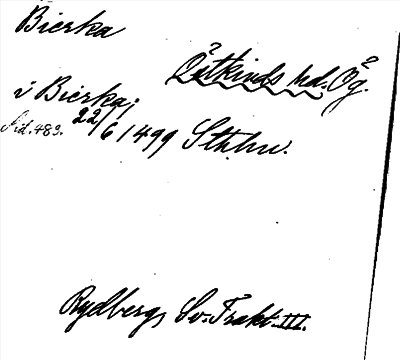 Bierka
Åtkinds hd. Ög.
i Bierka;
Sid. 483. 22/6 1499 Sthlm.
Rydbergs Sv. Trakt. III.